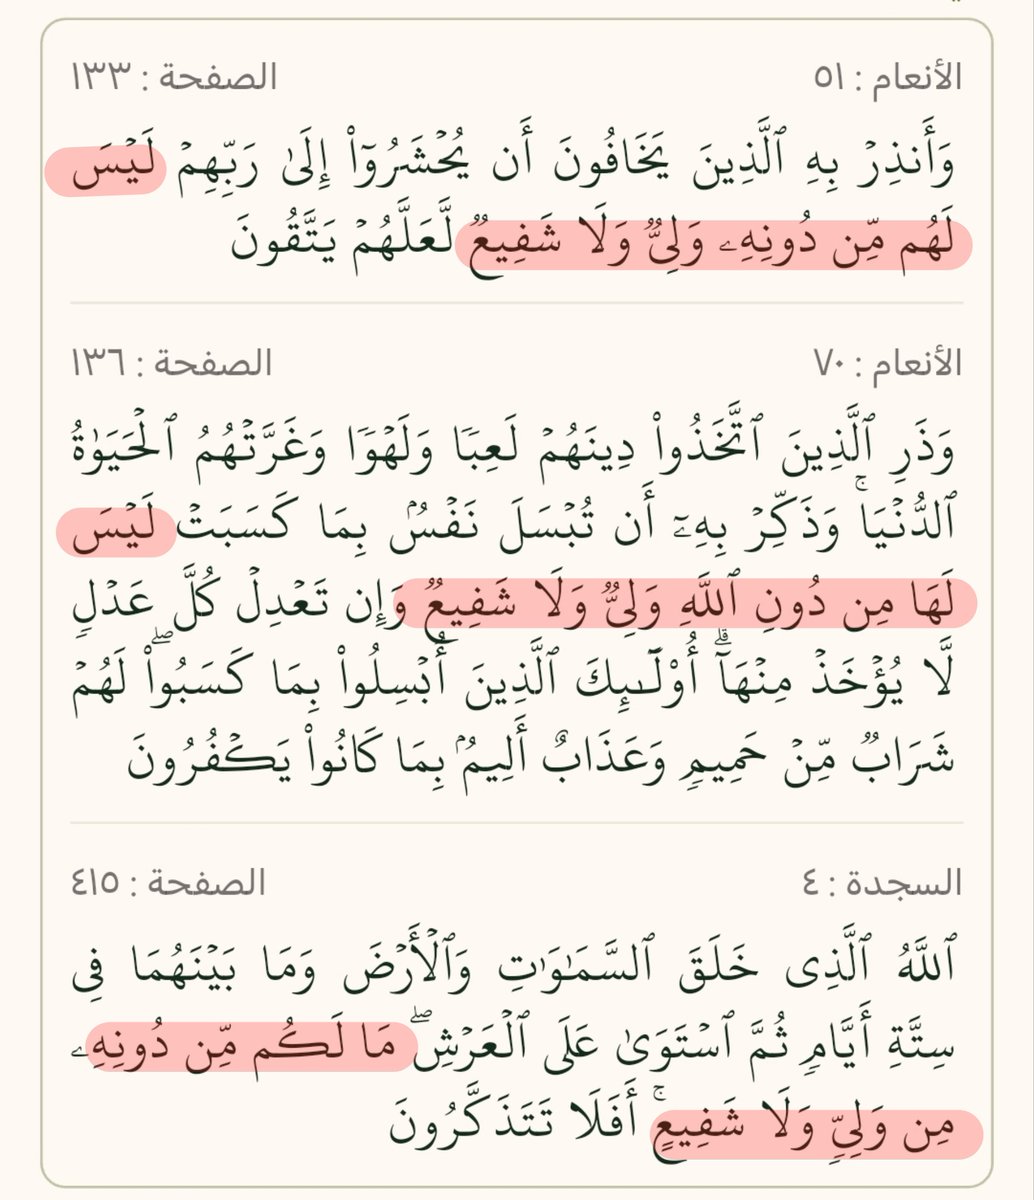 الأنعام : ٥١ الصفحة : ١٣٣
وَأَنذِرۡ بِهِ ٱلَّذِينَ يَخَافُونَ أَن يُحۡشَرُوٓاْ إِلَىٰ رَبِّهِمۡ لَيۡسَ
لَهُم مِّن دُونِهِۦ وَلِيّٞ وَلَا شَفِيعٞ لَّعَلَّهُمۡ يَتَّقُونَ
الأنعام : ٧٠ الصفحة : ١٣٦
وَذَرِ ٱلَّذِينَ ٱتَّخَذُواْ دِينَهُمۡ لَعِبٗا وَلَهۡوٗا وَغَرَّتۡهُمُ ٱلۡحَيَوٰةُ
ٱلدُّنۡيَاۚ وَذَكِّرۡ بِهِۦٓ أَن تُبۡسَلَ نَفۡسُۢ بِمَا كَسَبَتۡ لَيۡسَ
لَهَا مِن دُونِ ٱللَّهِ وَلِيّٞ وَلَا شَفِيعٞ وَإِن تَعۡدِلۡ كُلَّ عَدۡلٖ
لَّا يُؤۡخَذۡ مِنۡهَآۗ أُوْلَٰٓئِكَ ٱلَّذِينَ أُبۡسِلُواْ بِمَا كَسَبُواْۖ لَهُمۡ
شَرَابٞ مِّنۡ حَمِيمٖ وَعَذَابٌ أَلِيمُۢ بِمَا كَانُواْ يَكۡفُرُونَ
السجدة : ٤ الصفحة : ٤١٥
ٱللَّهُ ٱلَّذِي خَلَقَ ٱلسَّمَٰوَٰتِ وَٱلۡأَرۡضَ وَمَا بَيۡنَهُمَا فِي
سِتَّةِ أَيَّامٖ ثُمَّ ٱسۡتَوَىٰ عَلَى ٱلۡعَرۡشِۖ مَا لَكُم مِّن دُونِهِۦ
مِن وَلِيّٖ وَلَا شَفِيعٍۚ أَفَلَا تَتَذَكَّرُونَ